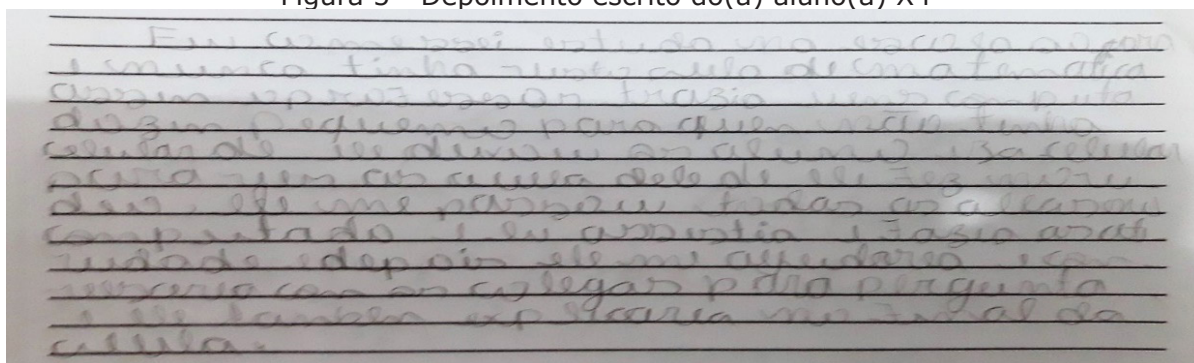 Figura 5 – Depoimento escrito do(a) aluno(a) X4
Eu comessei estuda na escola agora
e nunca tinha visto aula de matematica
assim o professor trazia uns computa
dozin pequeno para quem não tinha
celular de ele os aluno usa celular
para ver as aula dele de ele fez
ele me passou todas as aulas
computado e eu assistia e fasia as ati
vidade e depois ele me ajudares e com
versaria com os colegas para pergunta
e ele tambem explicaria no final da
aula.